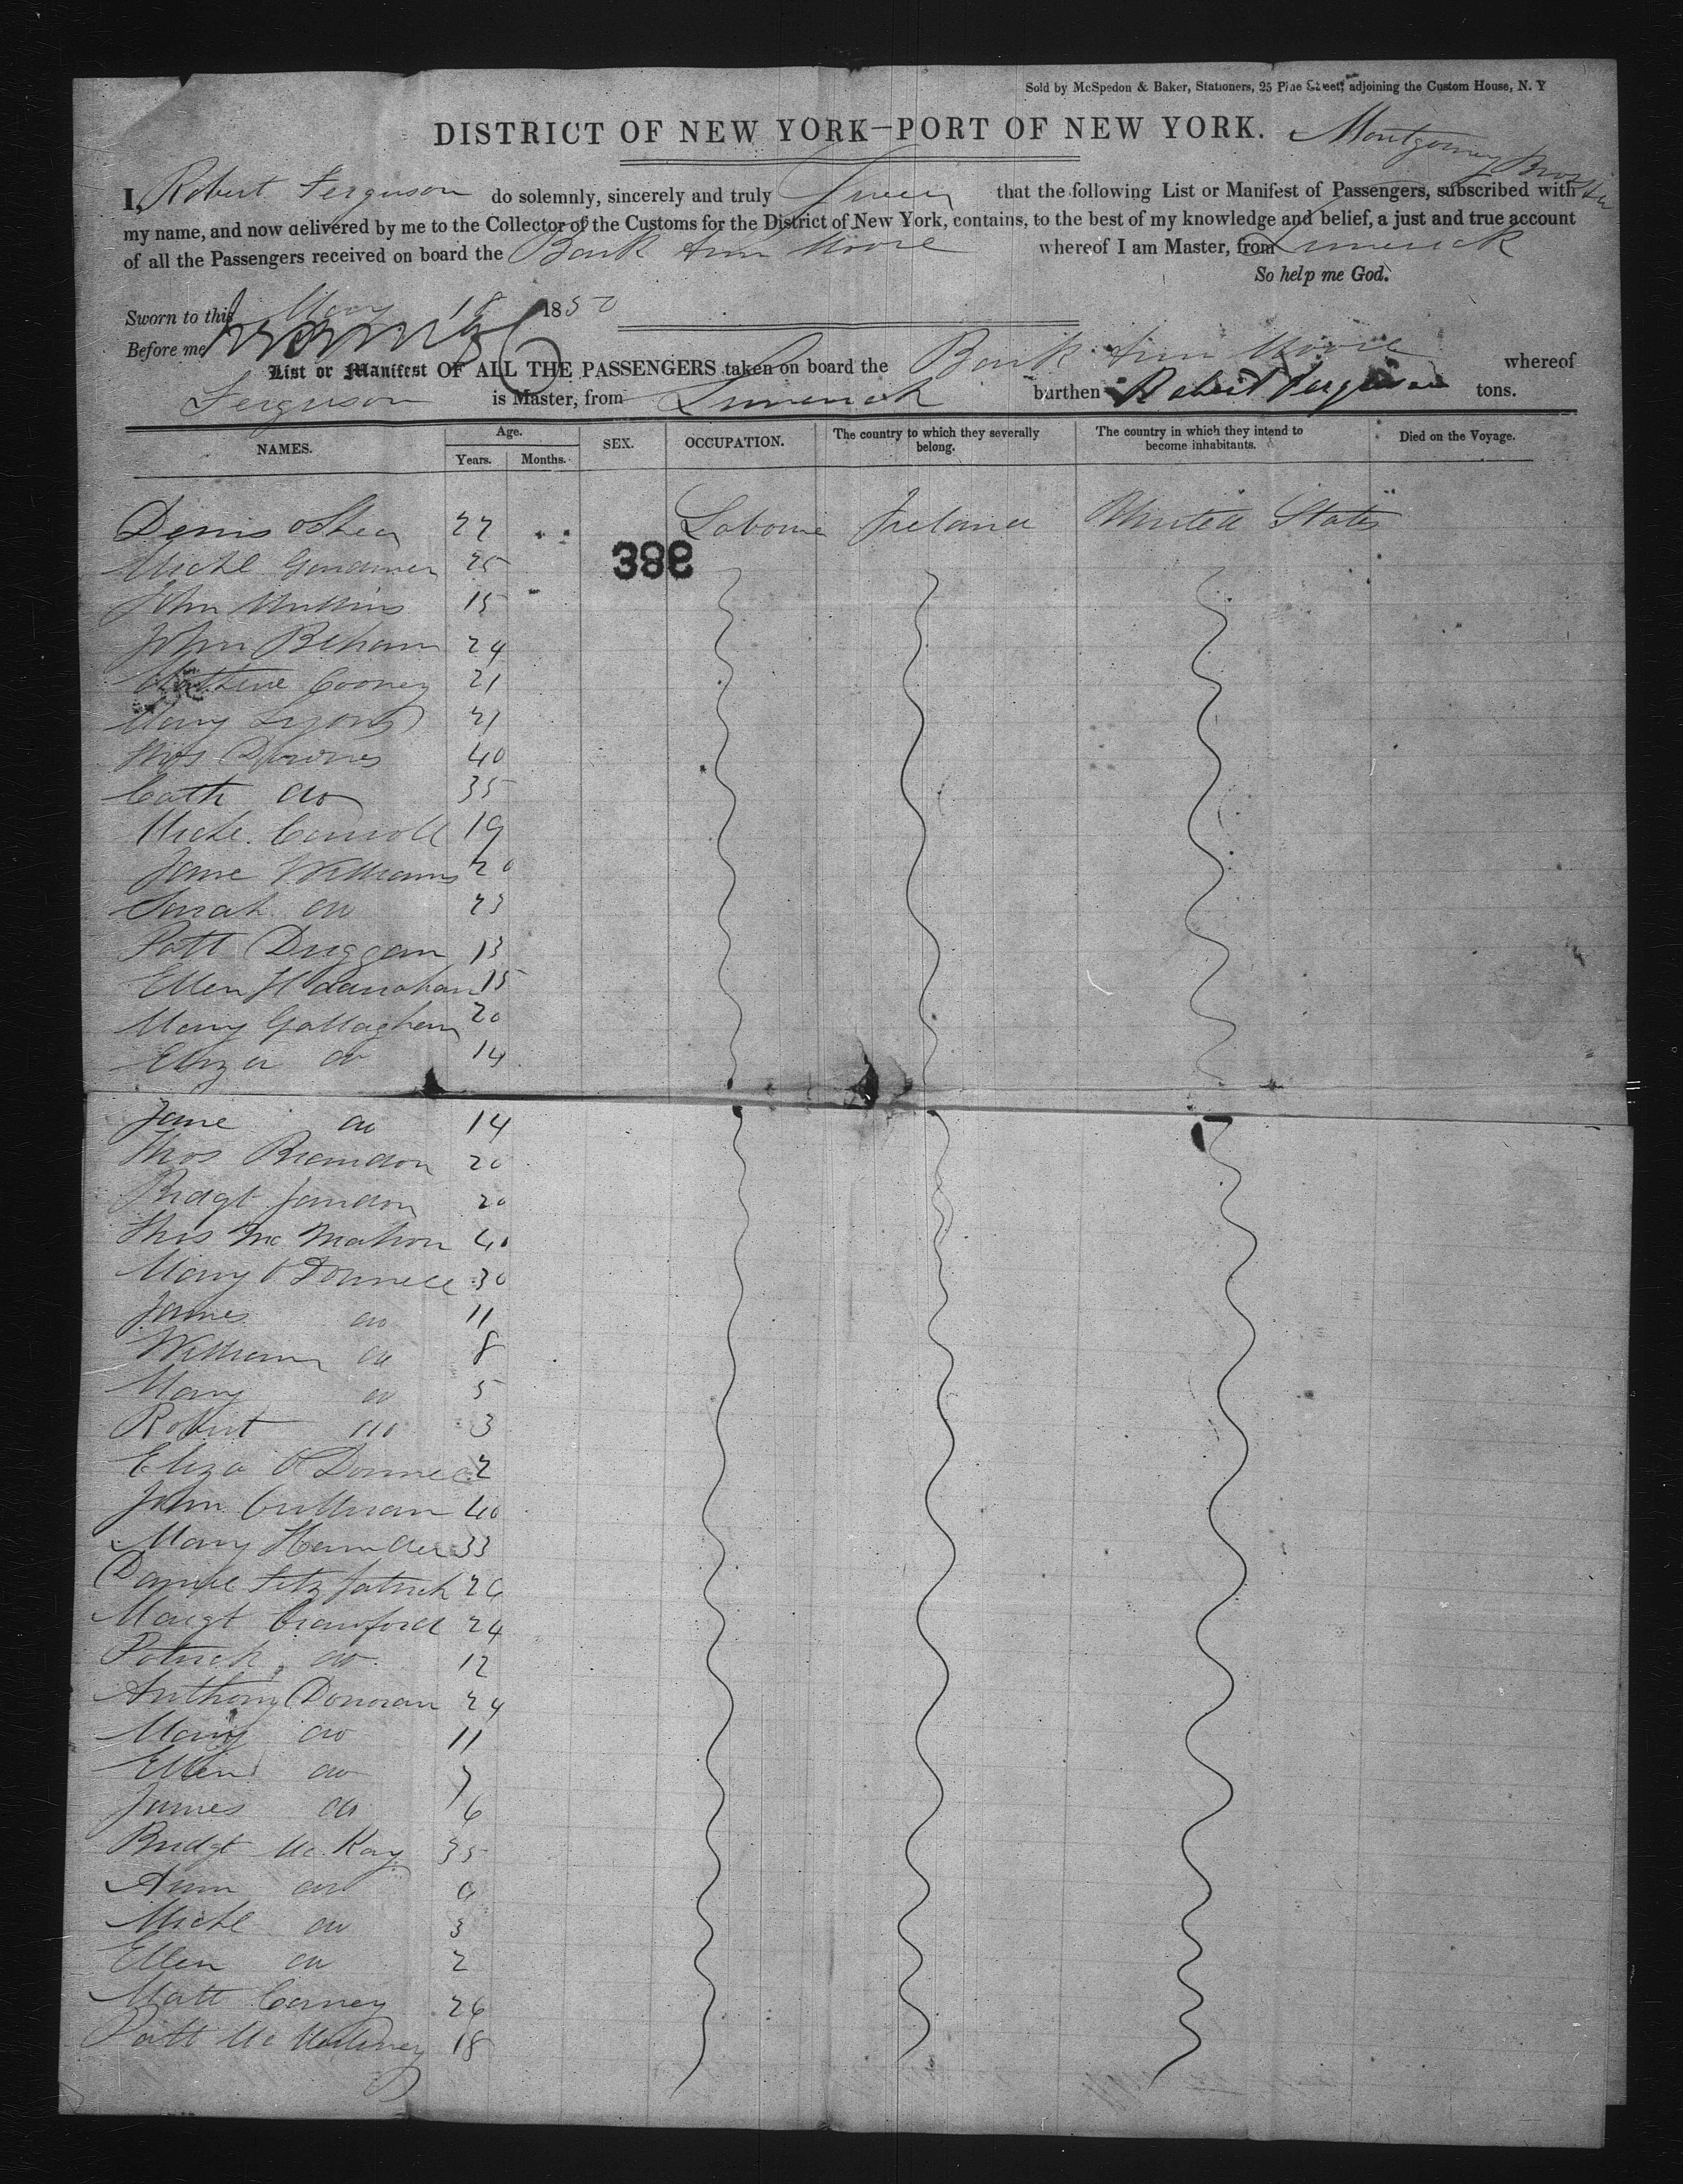 Sold by McSpedon & Baker, Stationers, 25 Pine Street, adjoining the Custom House, N. Y
DISTRICT OF NEW YORK—PORT OF NEW YORK.
Montgomery Bros
I, Robert Ferguson do solemnly, sincerely and truly Swear that the following List or Manifest of Passengers, subscribed with
my name, and now delivered by me to the Collector of the Customs for the District of New York, contains, to the best of my knowledge and belief, a just and true account
of all the Passengers received on board the Bark Ann Moore whereof I am Master, from Limerick
So help me God.
Sworn to this May 18 1850
Before me
List or Manifest OF ALL THE PASSENGERS taken on board the Bark Ann Moore whereof
Ferguson is Master, from Limerick burthen Robert Ferguson tons.
NAMES. Age. Years. Months. SEX. OCCUPATION. The country to which they severally belong. The country in which they intend to become inhabitants. Died on the Voyage.
Denis oShea 27 Labourer Ireland United States
386
Michl 25
John Mullins 15
John Beham 24
Cooney 21
Mary Lyons 21
Thos Downes 40
Cath do 35
Michl. Carroll 19
Jane Williams 20
Sarah do 23
Patt Duggan 13
Ellen 15
Mary Gallagher 20
Eliza do 14
Jane do 14
Thos 20
Bridgt 20
Thos Mc Mahon 40
Mary O Donnell 30
James do 11
William do 8
Mary do 5
Robert do 3
Eliza O Donnell 2
John Cullinan 40
Mary 33
Daniel Fitzpatrick 26
Margt Crawford 24
Patrick do 12
Anthony Donovan 24
Mary do 11
Ellen do 7
James do 6
Bridgt Mc Kay 35
Ann do 6
Michl do 3
Ellen do 2
Matt Carney 26
Patt Mc 18